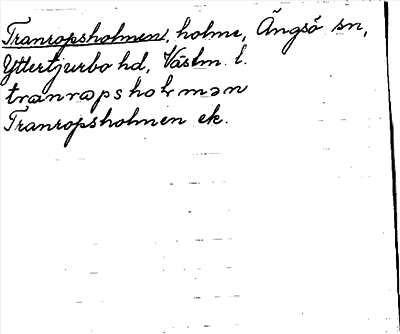 Tranropsholmen, holme, Ängsö sn,
Yttertjurbo hd, Västm. l.
tranrapsholmən
Tranropsholmen ek.